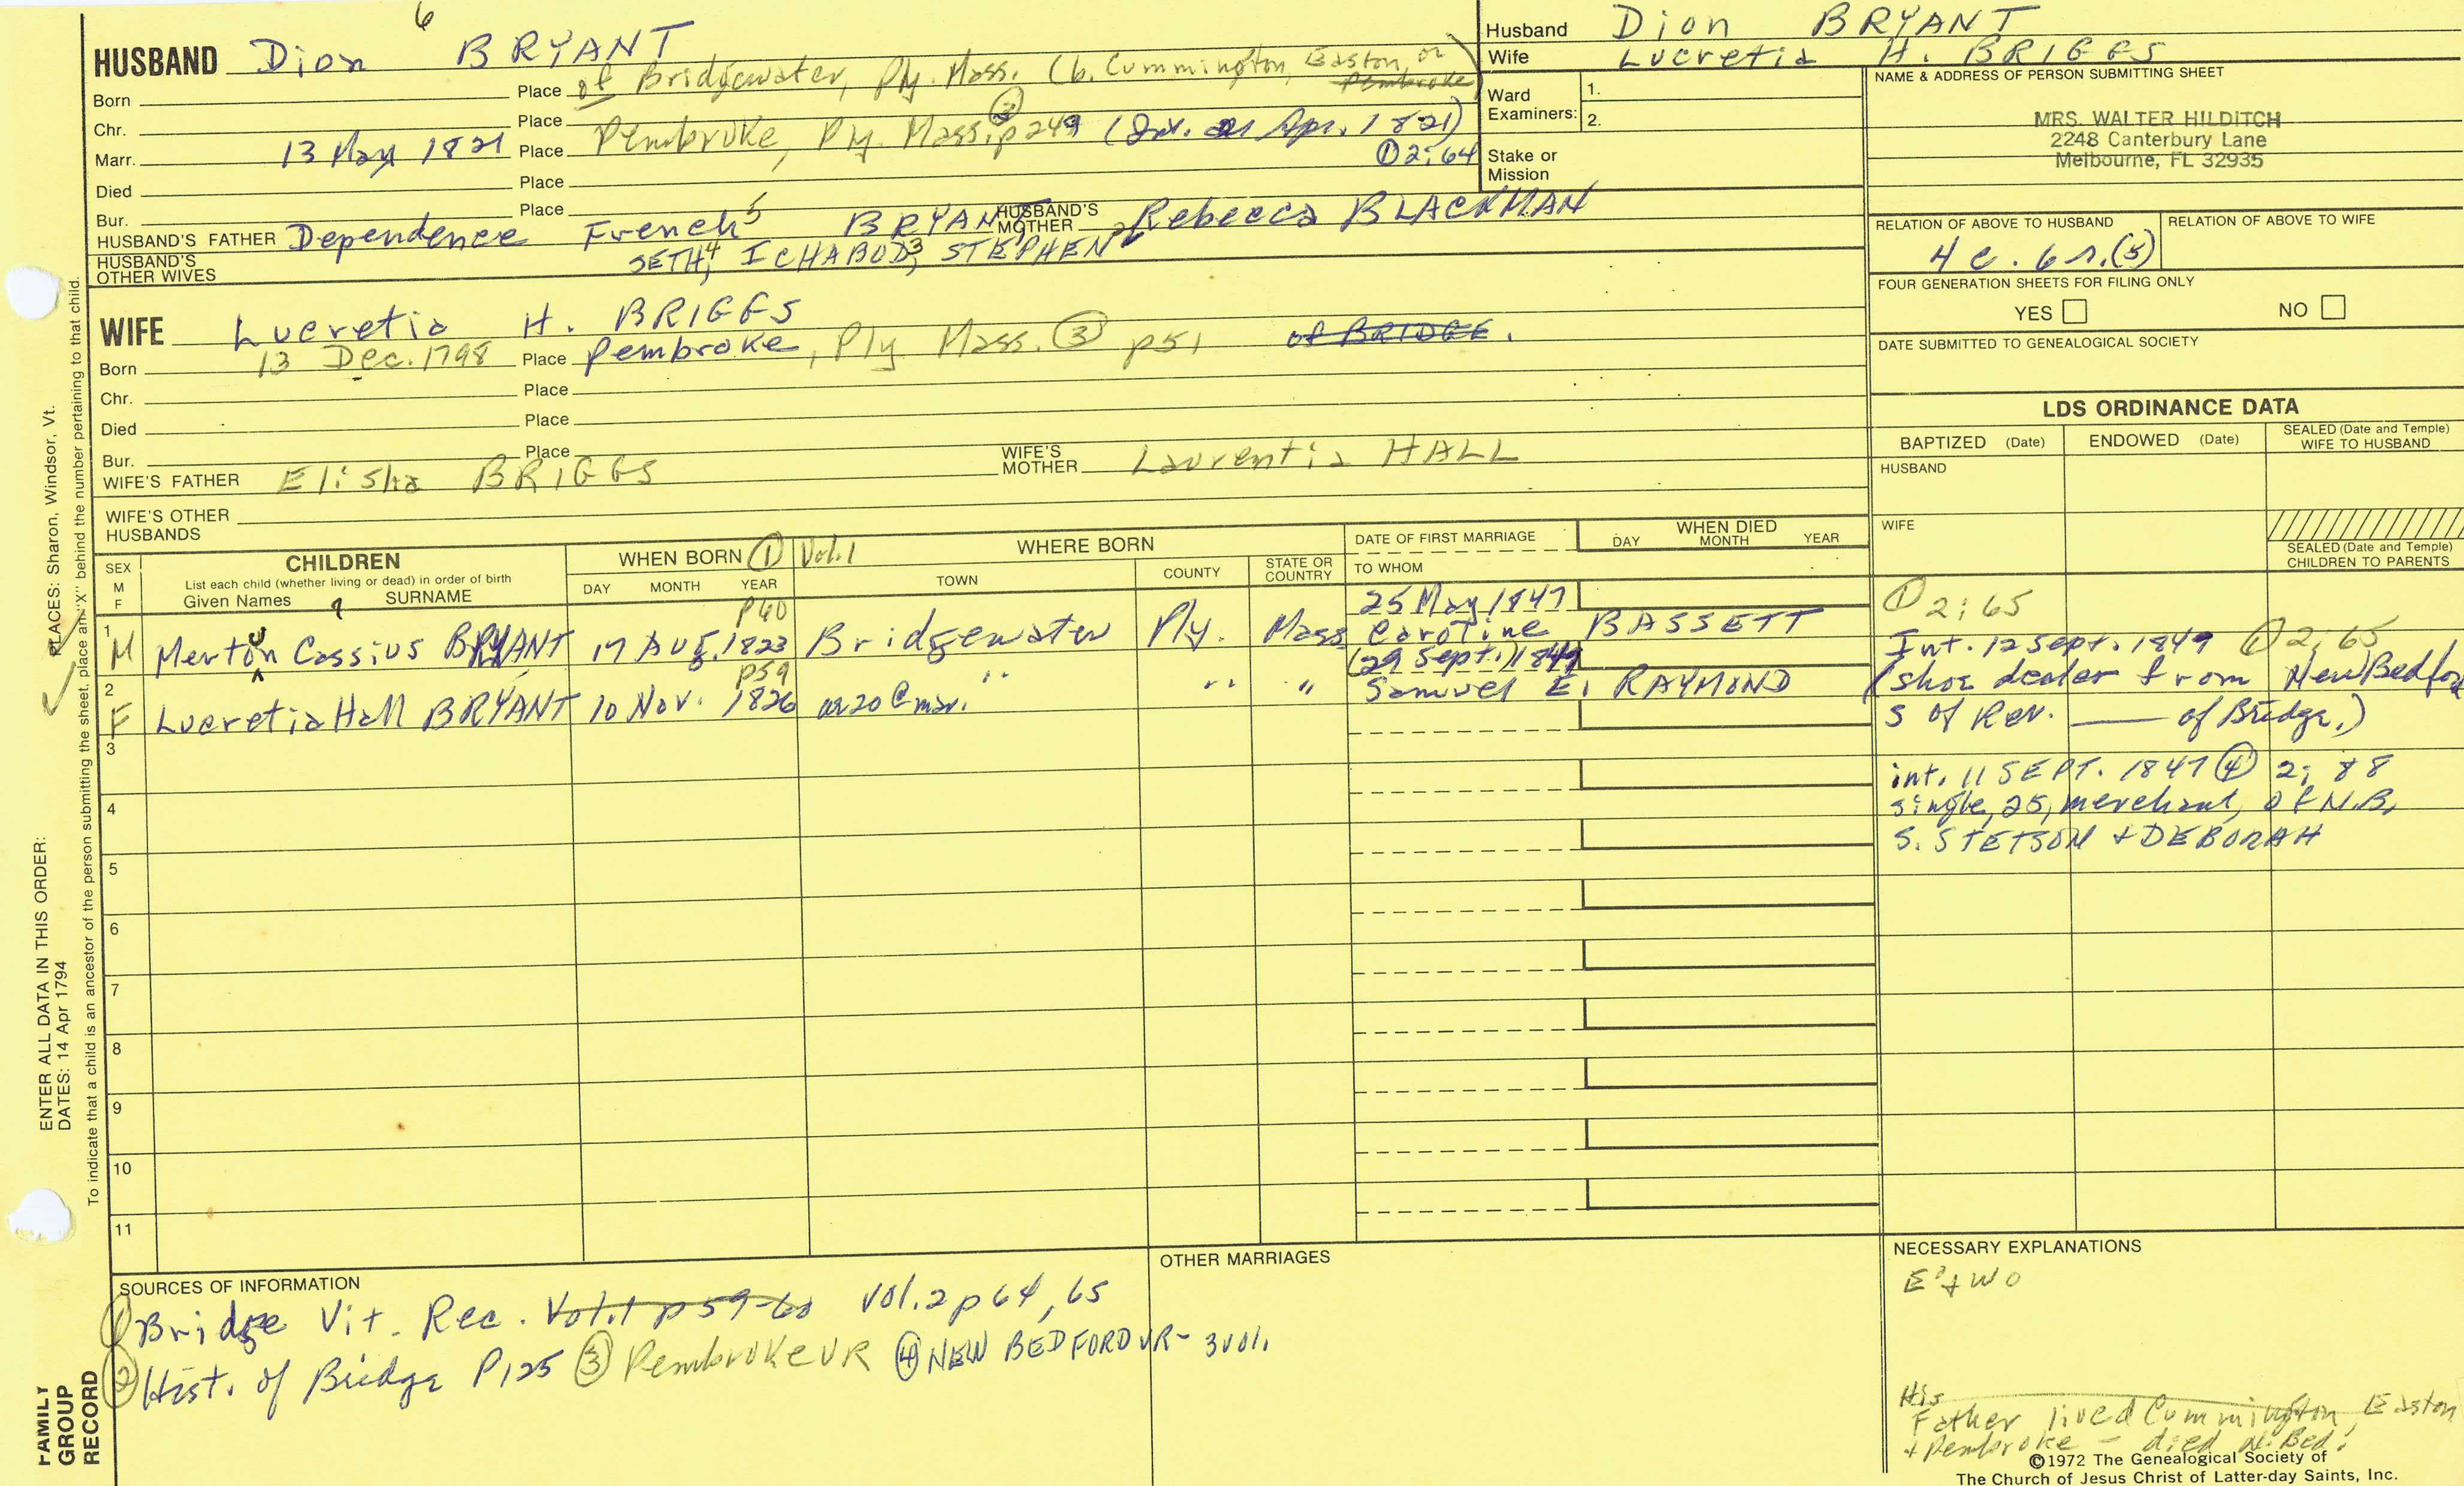 6
HUSBAND Dion BRYANT
Born Place of Bridgewater, Ply. Mass. (b. Cummington, Easton, or Pembroke)
Chr. Place
Marr. 13 May 1821 Place Pembroke, Ply. Mass. ③ p249 (Int. 21 Apr. 1821)
① 2:64
Died Place
Bur. Place
HUSBAND'S FATHER Dependence French⁵ BRYANT HUSBAND'S MOTHER Rebecca BLACKMAN
SETH⁴, ICHABOD³, STEPHEN²
HUSBAND'S OTHER WIVES
WIFE Lucretia H. BRIGGS
Born 13 Dec. 1798 Place Pembroke, Ply Mass. ③ p51 of BRIDGE.
Chr. Place
Died Place
Bur. Place
WIFE'S FATHER Elisha BRIGGS WIFE'S MOTHER Laurentia HALL
WIFE'S OTHER HUSBANDS
Husband Dion BRYANT
Wife Lucretia H. BRIGGS
Ward Examiners: 1.
2.
Stake or Mission
NAME & ADDRESS OF PERSON SUBMITTING SHEET
MRS. WALTER HILDITCH
2248 Canterbury Lane
Melbourne, FL 32935
RELATION OF ABOVE TO HUSBAND RELATION OF ABOVE TO WIFE
4 c. 6 r. (5)
FOUR GENERATION SHEETS FOR FILING ONLY
YES NO
DATE SUBMITTED TO GENEALOGICAL SOCIETY
LDS ORDINANCE DATA
BAPTIZED (Date) ENDOWED (Date) SEALED (Date and Temple) WIFE TO HUSBAND
HUSBAND
WIFE
SEALED (Date and Temple) CHILDREN TO PARENTS
SEX M F CHILDREN
List each child (whether living or dead) in order of birth
Given Names SURNAME
WHEN BORN ① Vol.1
DAY MONTH YEAR
WHERE BORN
TOWN COUNTY STATE OR COUNTRY
DATE OF FIRST MARRIAGE
TO WHOM
WHEN DIED
DAY MONTH YEAR
p60 25 May 1847 ① 2:65
1 M Merton Cassius BRYANT 17 Aug. 1823 Bridgewater Ply. Mass Caroline BASSETT
p59 (29 Sept.) 1849 Int. 12 Sept. 1849 ① 2:65
2 F Lucretia Hall BRYANT 10 Nov. 1826 " " " Samuel E. RAYMOND
ae 20 @ mar.
(shoe dealer from New Bedfo
s of Rev. —— of Bridge.)
3
int. 11 SEPT. 1847 ④ 2:88
4
single, 25, merchant, of N.B.
S. STETSON + DEBORAH
5
6
7
8
9
10
11
SOURCES OF INFORMATION
① Bridge Vit. Rec. Vol.1 p59-60 Vol.2 p64, 65
② Hist. of Bridge P125 ③ Pembroke VR ④ NEW BEDFORD VR- 3 vol.
OTHER MARRIAGES
NECESSARY EXPLANATIONS
His
Father lived Cummington, Easton
+ Pembroke – died N. Bed.
©1972 The Genealogical Society of
The Church of Jesus Christ of Latter-day Saints, Inc.
PLACES: Sharon, Windsor, Vt.
ENTER ALL DATA IN THIS ORDER:
DATES: 14 Apr 1794
To indicate that a child is an ancestor of the person submitting the sheet, place an "X" behind the number pertaining to that child.
FAMILY
GROUP
RECORD